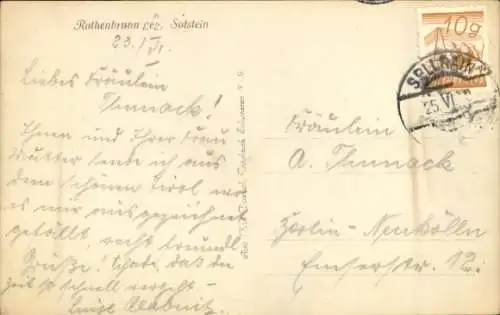 Rothenbrunn geg. Solstein
23./VI.
Liebes Fräulein
Thunack!
Ihnen und Ihrer Frau
Mutter sende ich aus
dem schönen Tirol wo
es mir ausgezeichnet
gefällt, recht freundl.
Grüße! Schade, daß die
Zeit so schnell vergeht -
Luise
10g
SELLRAIN
25.VI
Fräulein
A. Thunack
Berlin-Neukölln
Emserstr. 12.